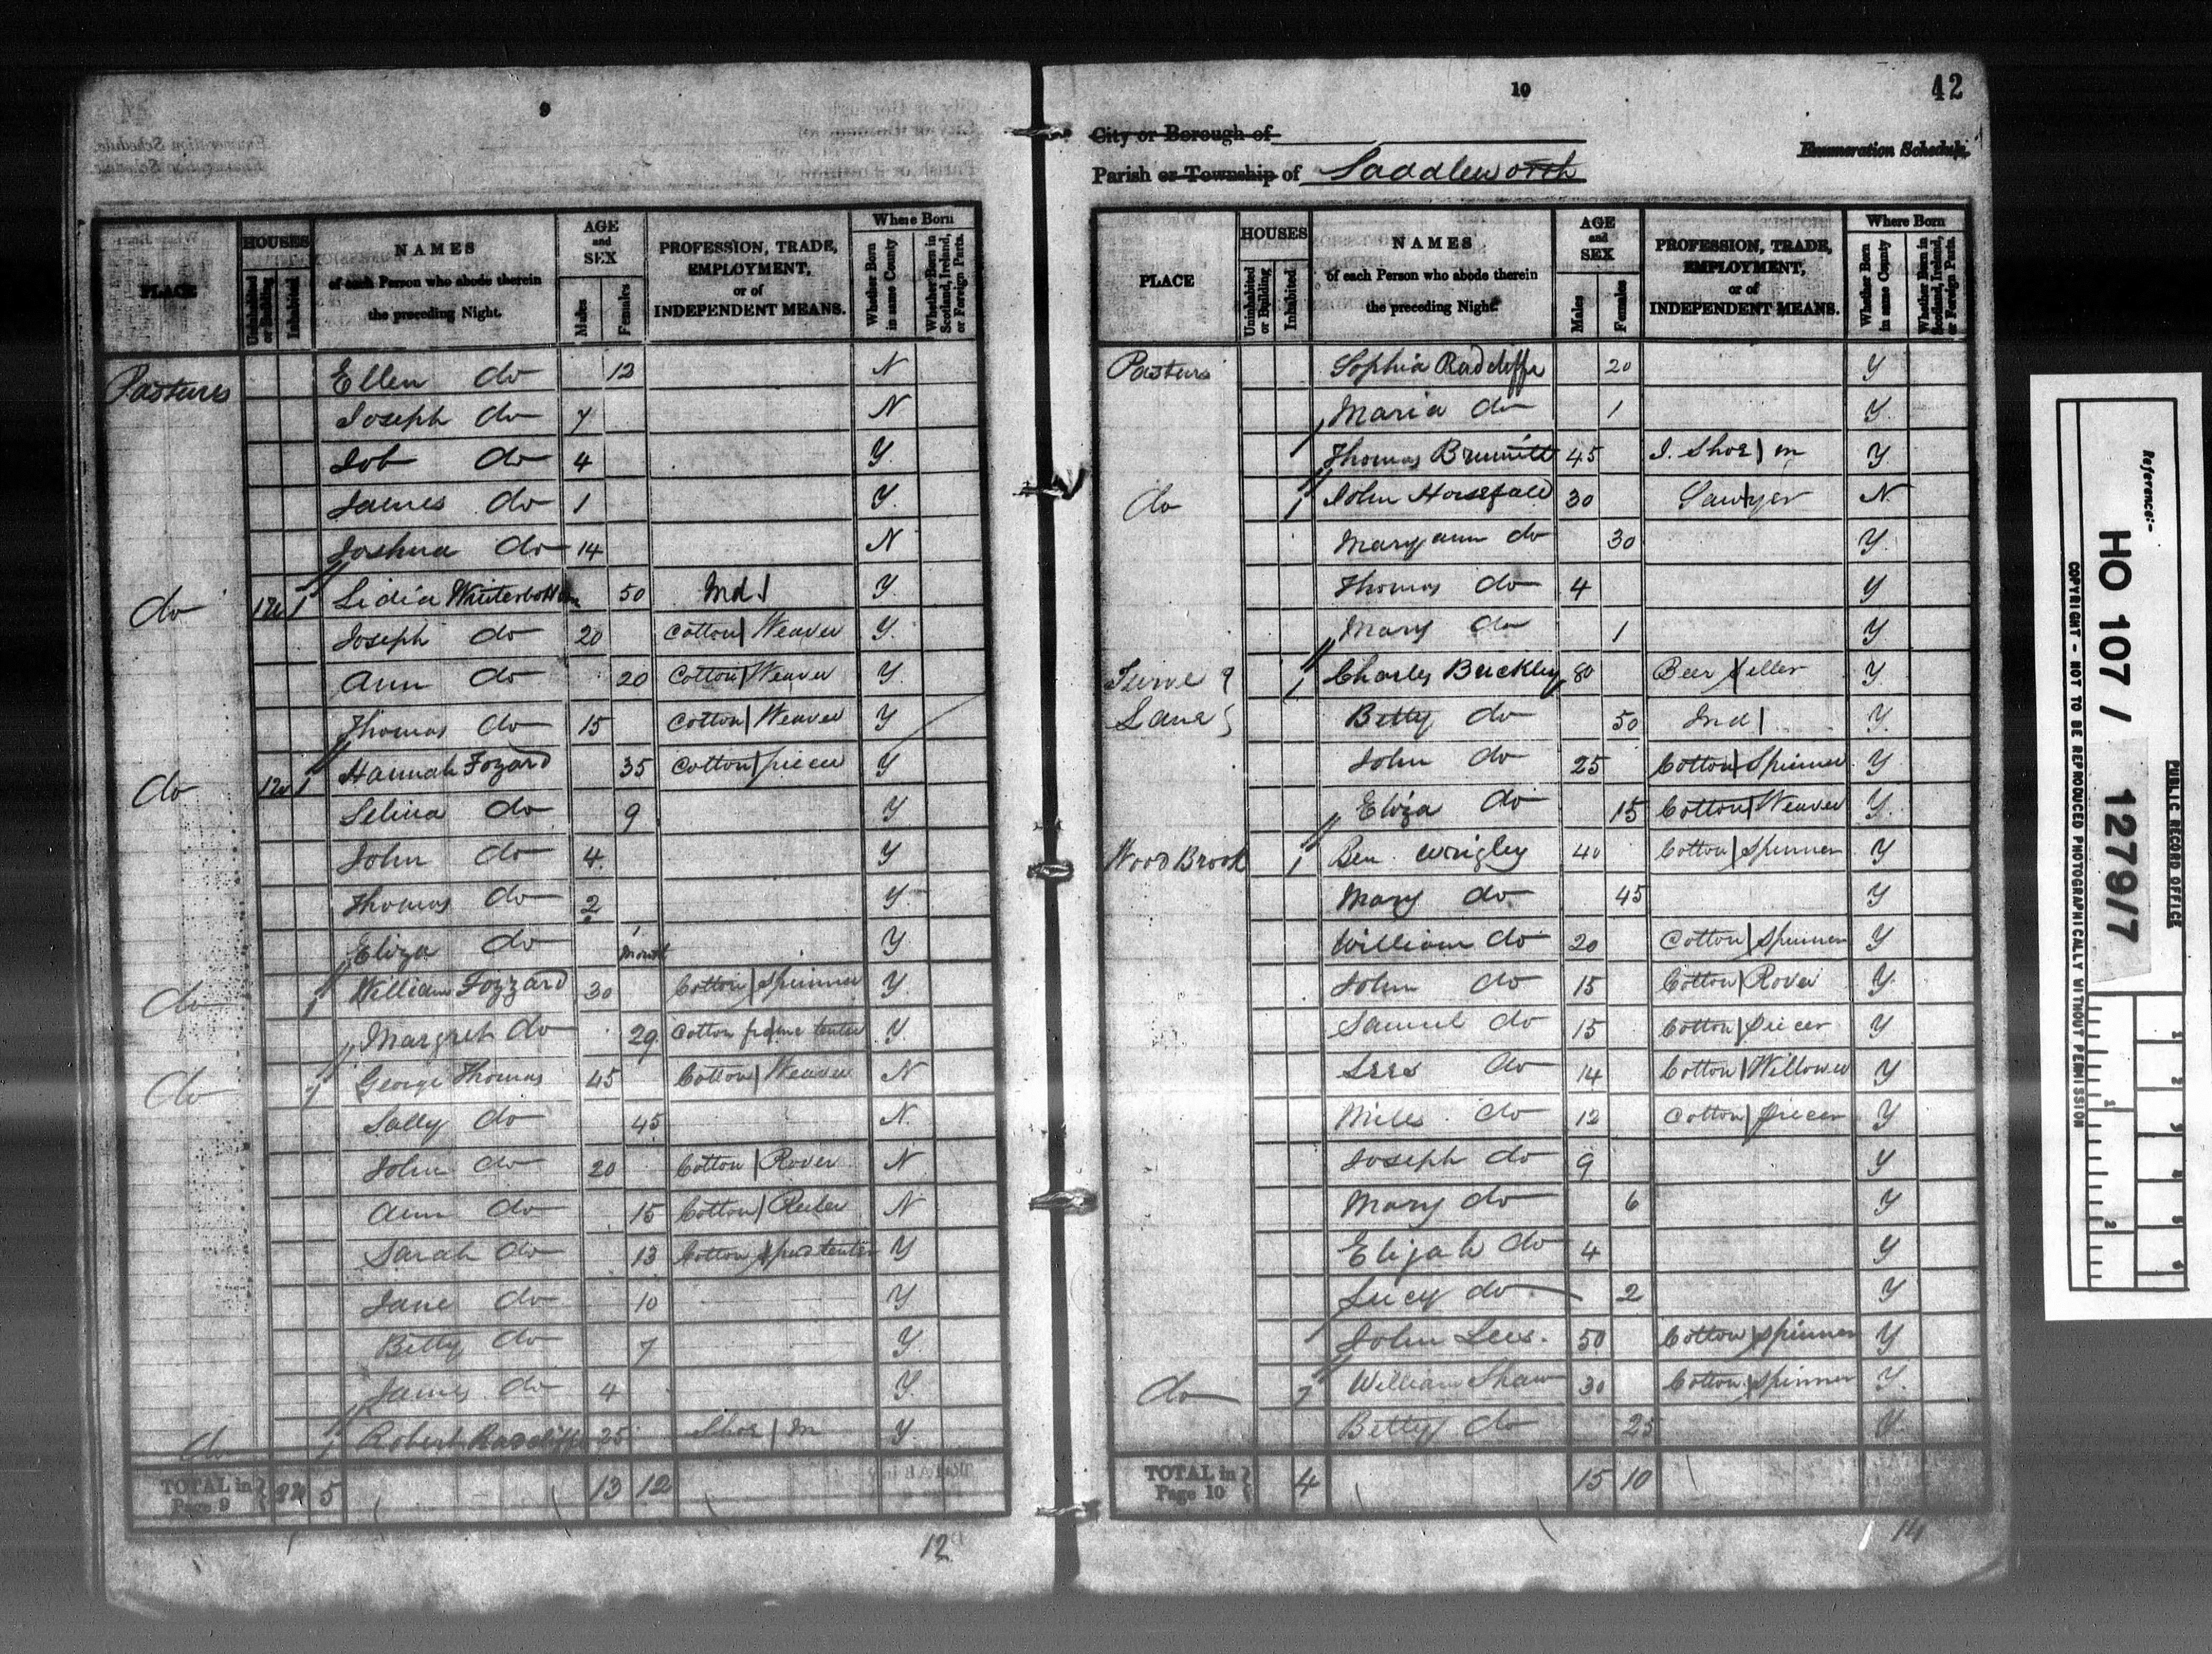 9
PLACE
HOUSES
Uninhabited or Building
Inhabited
NAMES
of each Person who abode therein
the preceding Night.
AGE
and
SEX
Males
Females
PROFESSION, TRADE,
EMPLOYMENT,
or of
INDEPENDENT MEANS.
Where Born
Whether Born in same County
Whether Born in Scotland, Ireland, or Foreign Parts.
Pastures Ellen do 12 N
Joseph do 7 N
Job do 4 Y
James do 1 Y
Joshua do 14 N
do 1 Lidia Winterbottom 50 Ind Y
Joseph do 20 Cotton Weaver Y
Ann do 20 Cotton Weaver Y
Thomas do 15 Cotton Weaver Y
do 1 Hannah Fozard 35 Cotton piecer Y
Selina do 9 Y
John do 4 Y
Thomas do 2 Y
Eliza do 1 Month Y
do 1 William Fozzard 30 Cotton Spinner Y
Margret do 29 Cotton frame tenter Y
do 1 George Thomas 45 Cotton Weaver N
Sally do 45 N
John do 20 Cotton Rover N
Ann do 15 Cotton Reeler N
Sarah do 13 Cotton tenter Y
Jane do 10 Y
Betty do 7 Y
James do 4 Y
do 1 Robert Radcliffe 25 Shoe m Y
TOTAL in Page 9 5 13 12
12
10
42
City or Borough of
Enumeration Schedule.
Parish or Township of Saddleworth
PLACE
HOUSES
Uninhabited or Building
Inhabited
NAMES
of each Person who abode therein
the preceding Night.
AGE
and
SEX
Males
Females
PROFESSION, TRADE,
EMPLOYMENT,
or of
INDEPENDENT MEANS.
Where Born
Whether Born in same County
Whether Born in Scotland, Ireland, or Foreign Parts.
Pasturs Sophia Radcliffe 20 Y
Maria do 1 Y
Thomas Brumitt 45 J. Shoe m Y
do 1 John Horsefald 30 Sawyer N
Maryann do 30 Y
Thomas do 4 Y
Mary do 1 Y
1 Charles Buckley 80 Beer Seller Y
Lane Betty do 50 Ind Y
John do 25 Cotton Spinner Y
Eliza do 15 Cotton Weaver Y
Wood Brook 1 Ben. Wrigley 40 Cotton Spinner Y
Mary do 45 Y
William do 20 Cotton Spinner Y
John do 15 Cotton Rover Y
Samuel do 15 Cotton Piecer Y
Lees do 14 Cotton Willower Y
Miles do 12 Cotton Piecer Y
Joseph do 9 Y
Mary do 6 Y
Elijah do 4 Y
Lucy do 2 Y
John Lees. 50 Cotton Spinner Y
do 1 William Shaw 30 Cotton Spinner Y
Betty do 25 Y
TOTAL in Page 10 4 15 10
14
Reference:-
HO 107 / 1279/7
PUBLIC RECORD OFFICE
COPYRIGHT - NOT TO BE REPRODUCED PHOTOGRAPHICALLY WITHOUT PERMISSION